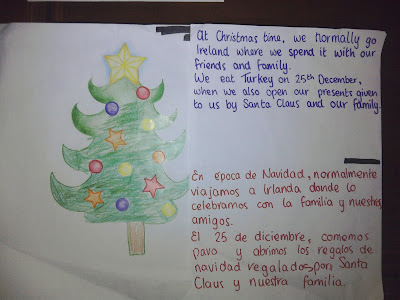 At Christmas time, we normally go
Ireland where we spend it with our
friends and family.
We eat Turkey on 25th December,
when we also open our presents given
to us by Santa Claus and our family.
En época de Navidad, normalmente
viajamos a Irlanda donde lo
celebramos con la familia y nuestros
amigos.
El 25 de diciembre, comemos
pavo y abrimos los regalos de
navidad regalados por Santa
Claus y nuestra familia.